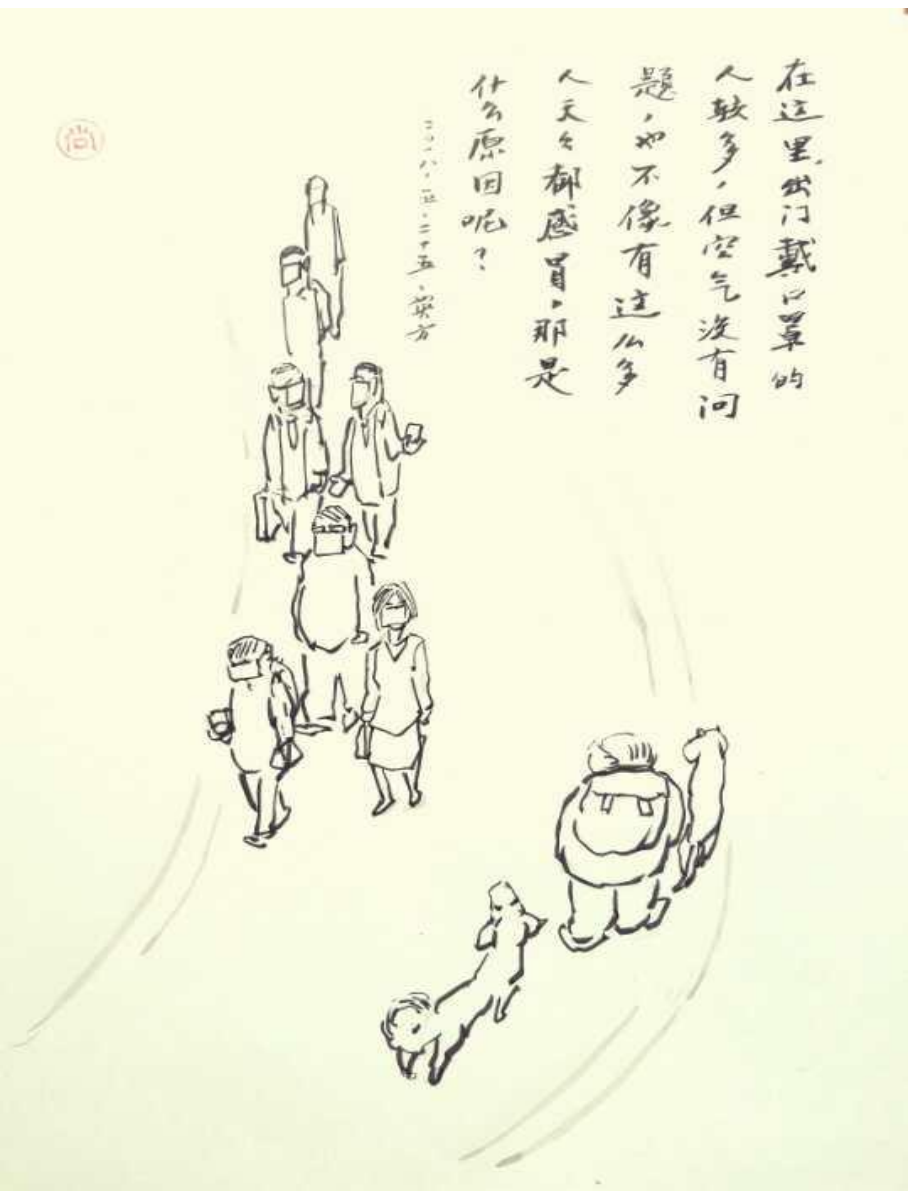 在这里,出门戴口罩的
人较多,但空气没有问
题,也不像有这么多
人天天都感冒。那是
什么原因呢?
二〇一八·五·二十五·英方
尚